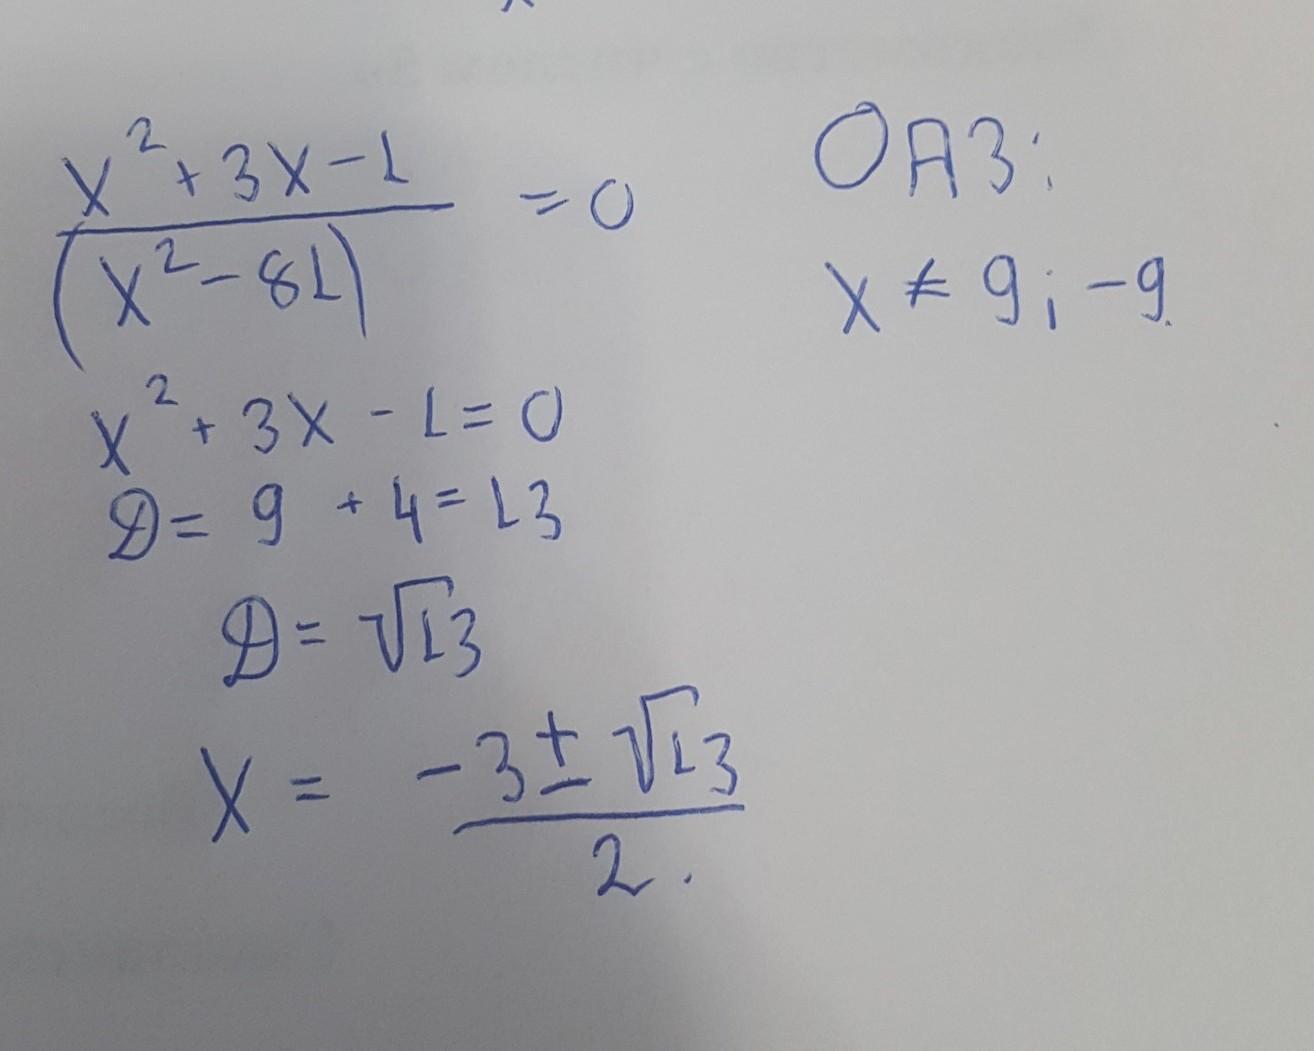 x² + 3x - 1
(x² - 81)
= 0
ОДЗ:
x ≠ 9; -9
x² + 3x - 1 = 0
D = 9 + 4 = 13
D = √13
x = -3 ± √13
2.